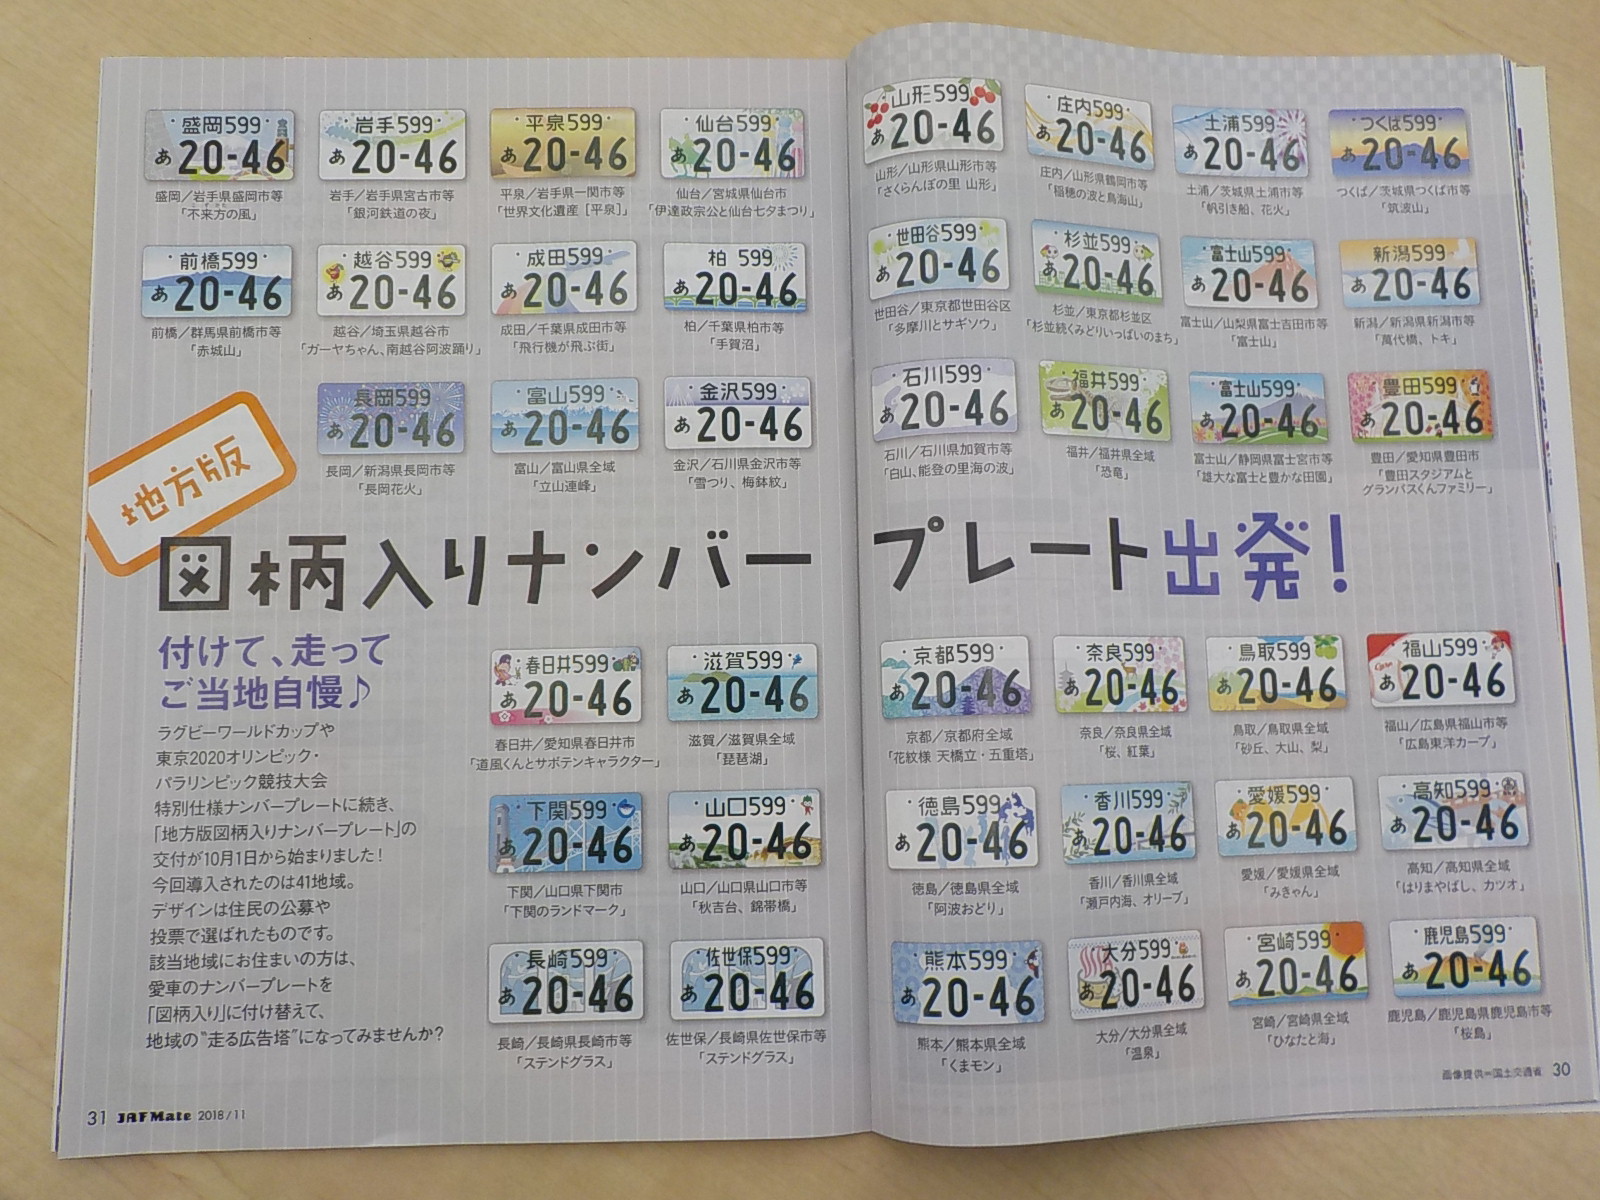 盛岡599
あ20-46
盛岡／岩手県盛岡市等
「不来方の風」
岩手599
あ20-46
岩手／岩手県宮古市等
「銀河鉄道の夜」
平泉599
あ20-46
平泉／岩手県一関市等
「世界文化遺産［平泉］」
仙台599
あ20-46
仙台／宮城県仙台市
「伊達政宗公と仙台七夕まつり」
山形599
あ20-46
山形／山形県山形市等
「さくらんぼの里 山形」
庄内599
あ20-46
庄内／山形県鶴岡市等
「稲穂の波と鳥海山」
土浦599
あ20-46
土浦／茨城県土浦市等
「帆引き船、花火」
つくば599
あ20-46
つくば／茨城県つくば市等
「筑波山」
前橋599
あ20-46
前橋／群馬県前橋市等
「赤城山」
越谷599
あ20-46
越谷／埼玉県越谷市
「ガーヤちゃん、南越谷阿波踊り」
成田599
あ20-46
成田／千葉県成田市等
「飛行機が飛ぶ街」
柏 599
あ20-46
柏／千葉県柏市等
「手賀沼」
世田谷599
あ20-46
世田谷／東京都世田谷区
「多摩川とサギソウ」
杉並599
あ20-46
杉並／東京都杉並区
「杉並続くみどりいっぱいのまち」
富士山599
あ20-46
富士山／山梨県富士吉田市等
「富士山」
新潟599
あ20-46
新潟／新潟県新潟市等
「萬代橋、トキ」
長岡599
あ20-46
長岡／新潟県長岡市等
「長岡花火」
富山599
あ20-46
富山／富山県全域
「立山連峰」
金沢599
あ20-46
金沢／石川県金沢市等
「雪つり、梅鉢紋」
石川599
あ20-46
石川／石川県加賀市等
「白山、能登の里海の波」
福井599
あ20-46
福井／福井県全域
「恐竜」
富士山599
あ20-46
富士山／静岡県富士宮市等
「雄大な富士と豊かな田園」
豊田599
あ20-46
豊田／愛知県豊田市
「豊田スタジアムと
グランパスくんファミリー」
地方版
図柄入りナンバープレート出発！
付けて、走って
ご当地自慢♪
ラグビーワールドカップや
東京2020オリンピック・
パラリンピック競技大会
特別仕様ナンバープレートに続き、
「地方版図柄入りナンバープレート」の
交付が10月1日から始まりました！
今回導入されたのは41地域。
デザインは住民の公募や
投票で選ばれたものです。
該当地域にお住まいの方は、
愛車のナンバープレートを
「図柄入り」に付け替えて、
地域の“走る広告塔”になってみませんか？
春日井599
あ20-46
春日井／愛知県春日井市
「道風くんとサボテンキャラクター」
滋賀599
あ20-46
滋賀／滋賀県全域
「琵琶湖」
京都599
あ20-46
京都／京都府全域
「花紋様 天橋立・五重塔」
奈良599
あ20-46
奈良／奈良県全域
「桜、紅葉」
鳥取599
あ20-46
鳥取／鳥取県全域
「砂丘、大山、梨」
福山599
Carp
あ20-46
福山／広島県福山市等
「広島東洋カープ」
下関599
あ20-46
下関／山口県下関市
「下関のランドマーク」
山口599
あ20-46
山口／山口県山口市等
「秋吉台、錦帯橋」
徳島599
あ20-46
徳島／徳島県全域
「阿波おどり」
香川599
あ20-46
香川／香川県全域
「瀬戸内海、オリーブ」
愛媛599
あ20-46
愛媛／愛媛県全域
「みきゃん」
高知599
あ20-46
高知／高知県全域
「はりまやばし、カツオ」
長崎599
あ20-46
長崎／長崎県長崎市等
「ステンドグラス」
佐世保599
あ20-46
佐世保／長崎県佐世保市等
「ステンドグラス」
熊本599
あ20-46
熊本／熊本県全域
「くまモン」
大分599
あ20-46
大分／大分県全域
「温泉」
宮崎599
あ20-46
宮崎／宮崎県全域
「ひなたと海」
鹿児島599
あ20-46
鹿児島／鹿児島県鹿児島市等
「桜島」
画像提供＝国土交通省 30
31 JAF Mate 2018/11